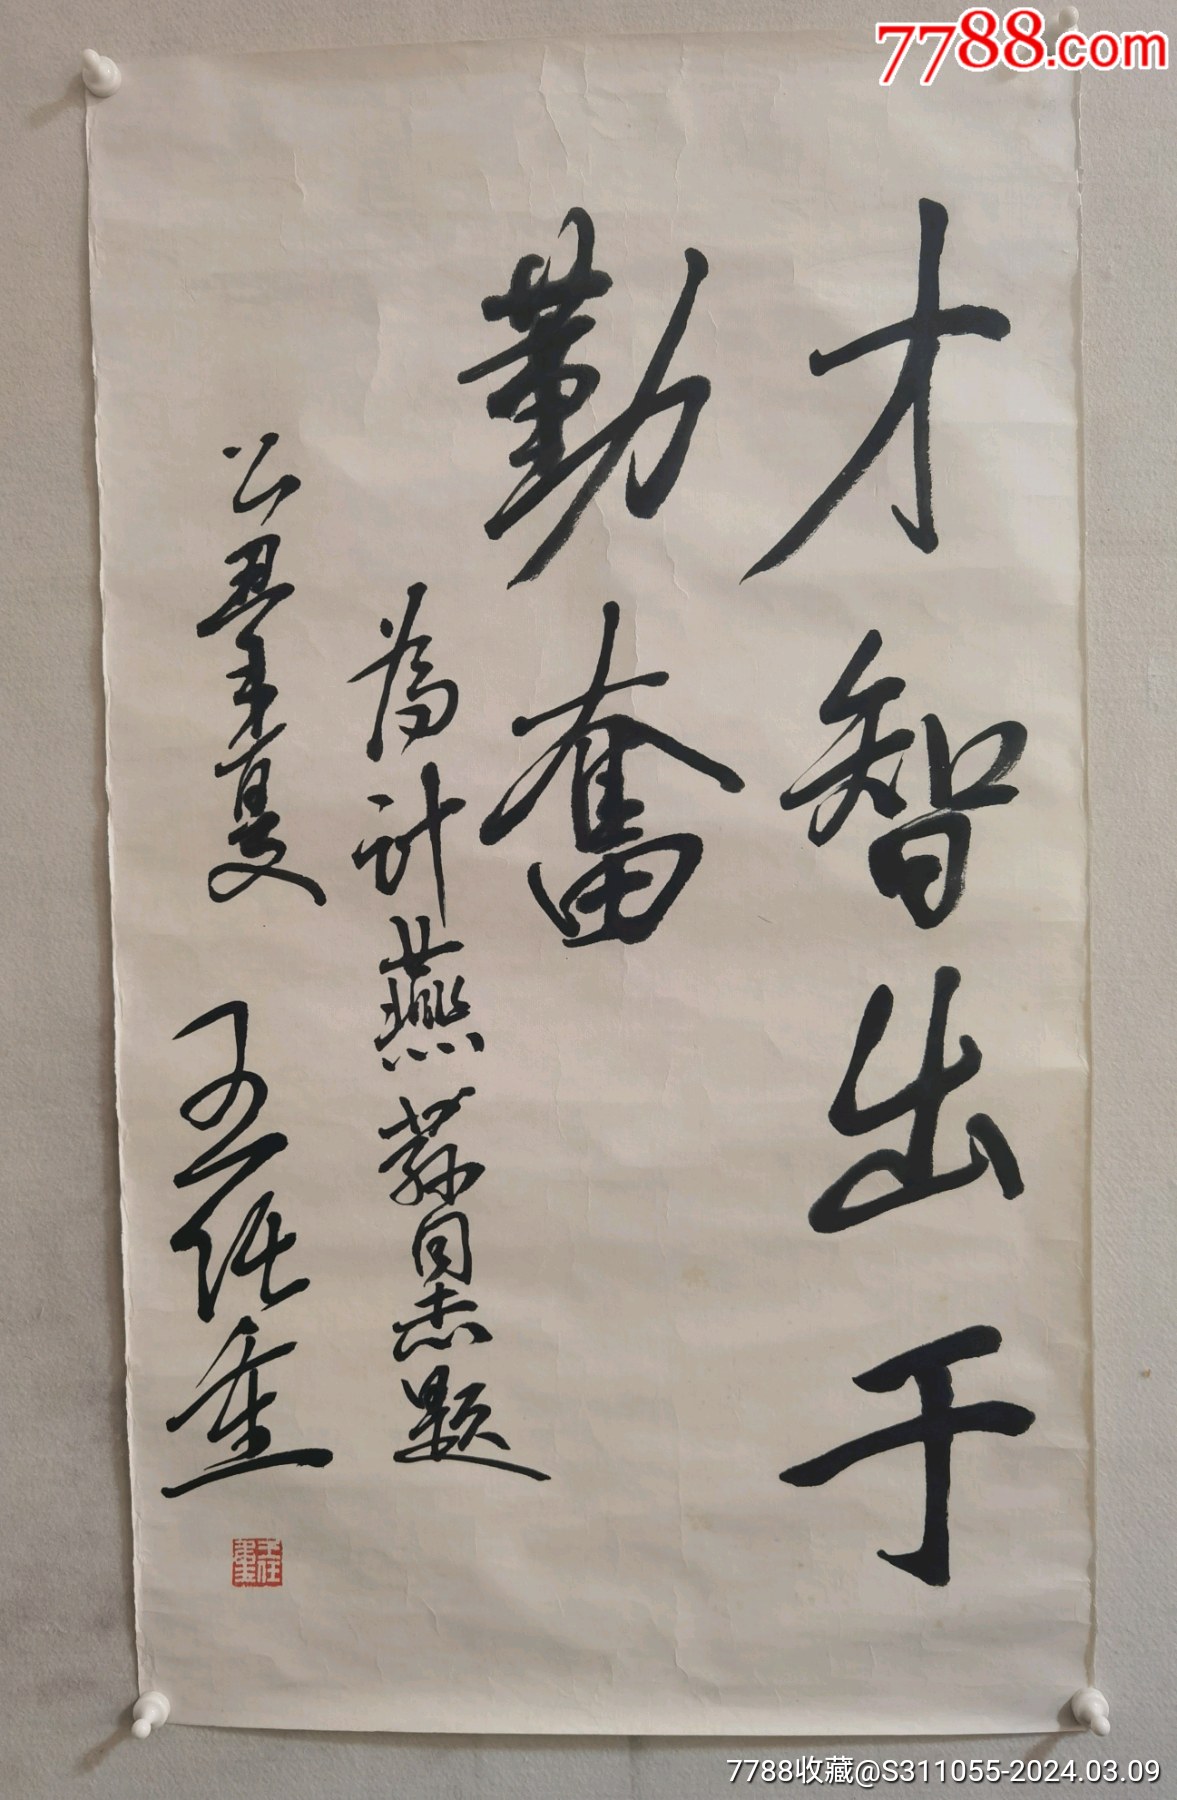 7788.com
才智出于
勤奮
为計燕蓀同志题
乙丑年夏
王任重
王任重
7788收藏@S311055-2024.03.09